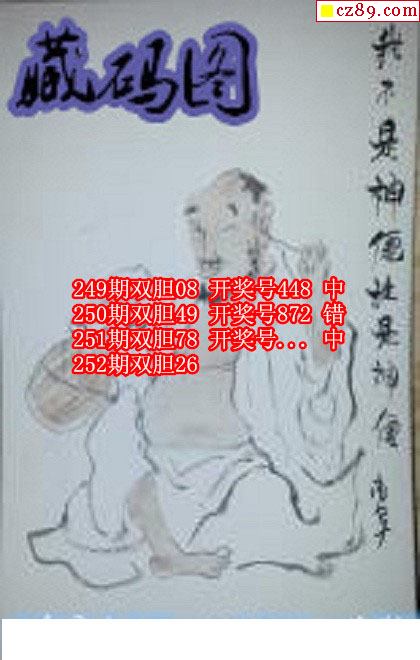 cz89.com
臓码图
我不是神僊 是神僊
249期双胆08 开奖号448 中
250期双胆49 开奖号872 错
251期双胆78 开奖号... 中
252期双胆26